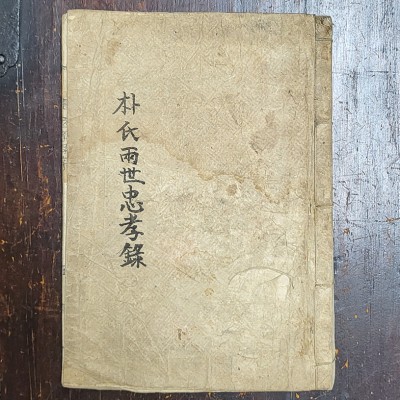 朴氏兩世忠孝錄